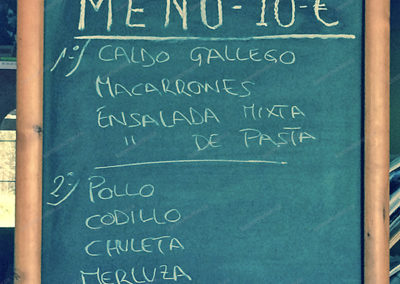 MENÚ - 10 - €
1º) CALDO GALLEGO
MACARRONES
ENSALADA MIXTA
" DE PASTA
2º) POLLO
CODILLO
CHULETA
MERLUZA